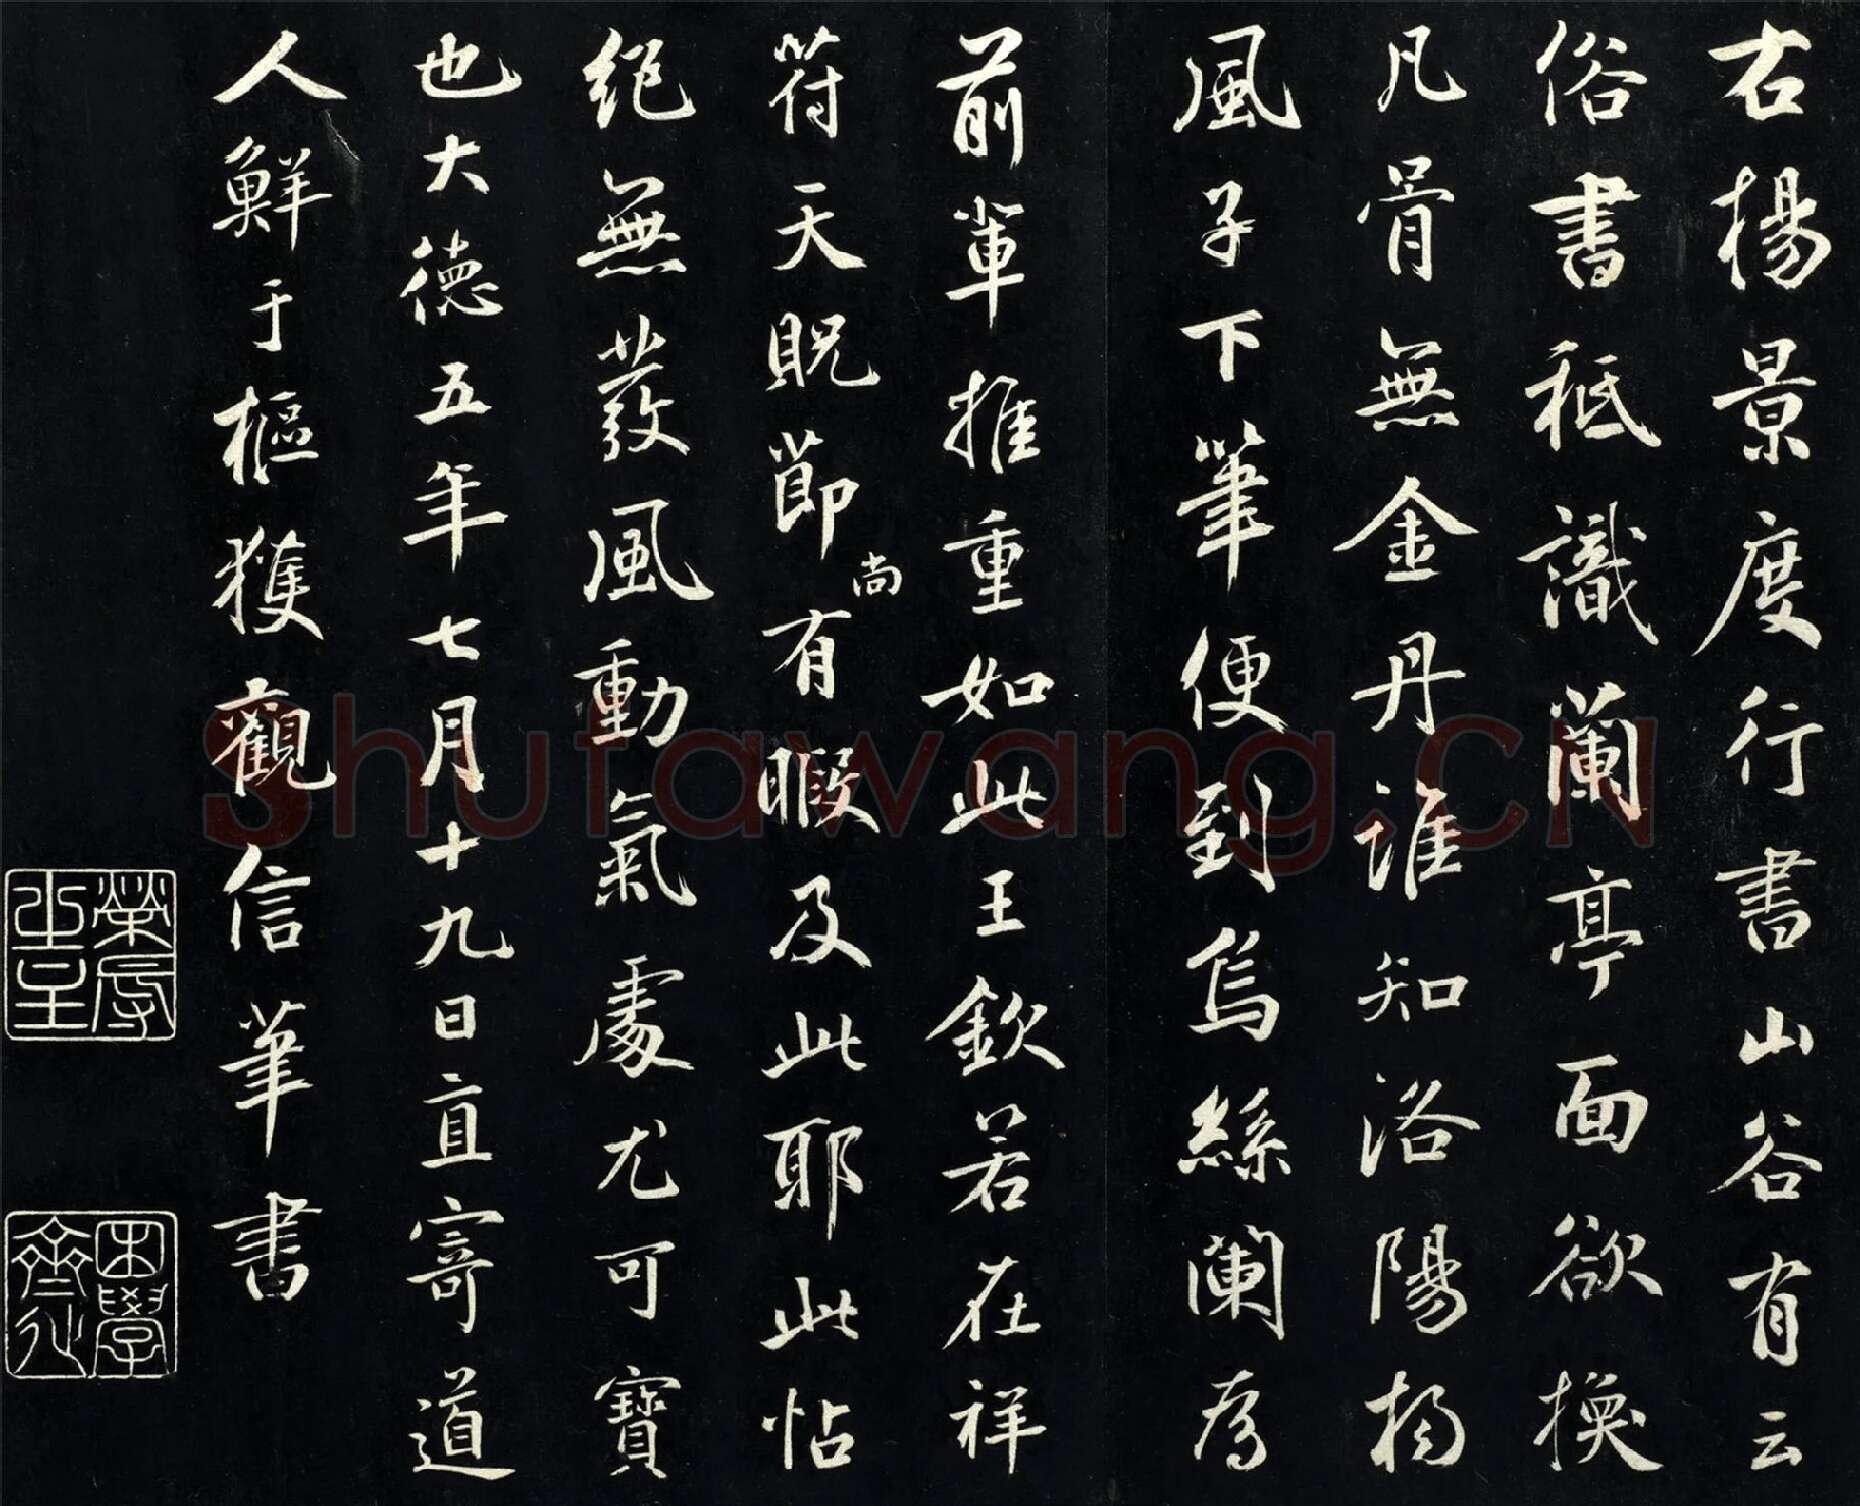 右楊景度行書山谷有云
俗書秖識蘭亭面欲換
凡骨無金丹誰知洛陽楊
風子下筆便到烏絲闌為
前輩推重如此王欽若在祥
符天貺節尚有暇及此耶此帖
絕無發風動氣處尤可寶
也大德五年七月十九日直寄道
人鮮于樞獲觀信筆書
Shufawang.CN